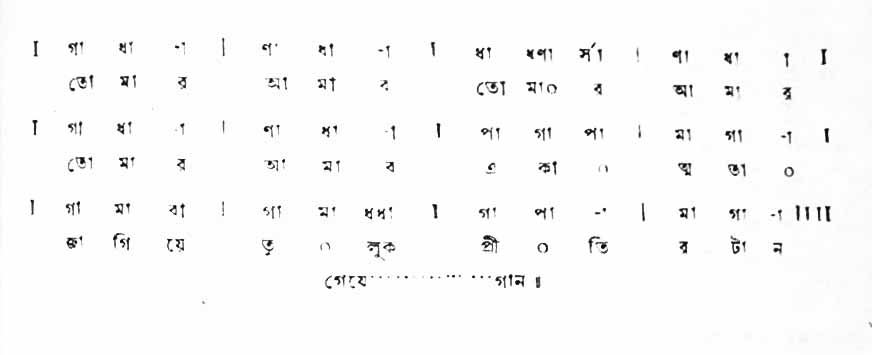 I গা ধা -া | ণা ধা -া I ধা ধণা র্সা | ণা ধা া I
তো মা র আ মা র তো মা০ র আ মা র
I গা ধা -া | ণা ধা -া I পা গা পা | মা গা -া I
তো মা র আ মা র এ কা ০ ত্ম তা ০
I গা মা রা | গা মা ধধা I গা পা -া | মা গা -া IIII
জা গি য়ে তু ০ লুক প্রী ০ তি র টা ন
গেয়ে..................গান ॥